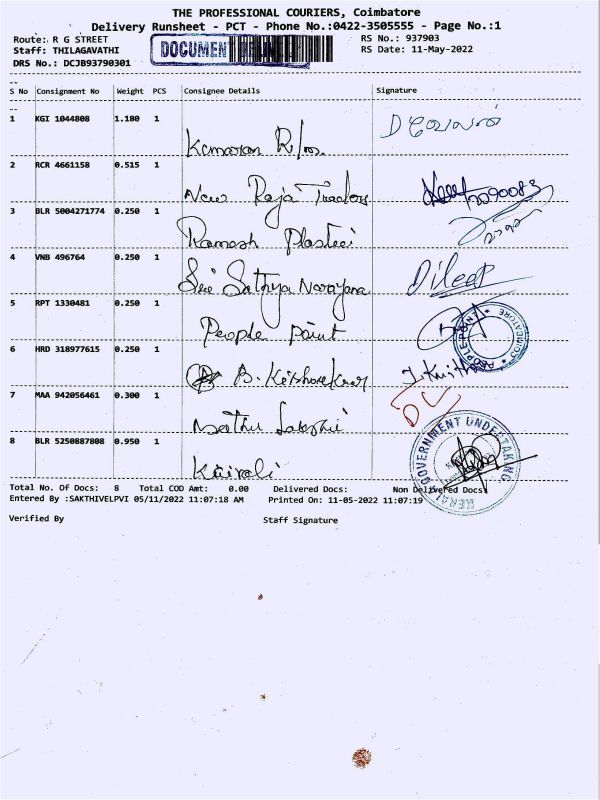 THE PROFESSIONAL COURIERS, Coimbatore
Delivery Runsheet - PCT - Phone No.:0422-3505555 - Page No.:1
Route: R G STREET
RS No.: 937903
Staff: THILAGAVATHI
DOCUMEN
RS Date: 11-May-2022
DRS No.: DCJB93790301
S No Consignment No Weight PCS Consignee Details Signature
1 KGI 1044808 1.180 1
2 RCR 4661158 0.515 1 New Raja Traders
3 BLR 5004271774 0.250 1 Ramesh
4 VNB 496764 0.250 1 Sathya Narayana Dileep
5 RPT 1330481 0.250 1 People point
PEOPLE POINT * COIMBATORE *
6 HRD 318977615 0.250 1
7 MAA 942056461 0.300 1
8 BLR 5250887808 0.950 1 Kairali
GOVERNMENT UNDERTAKING
Total No. Of Docs: 8 Total COD Amt: 0.00 Delivered Docs: Non Delivered Docs
Entered By :SAKTHIVELPVI 05/11/2022 11:07:18 AM Printed On: 11-05-2022 11:07:19
Verified By Staff Signature